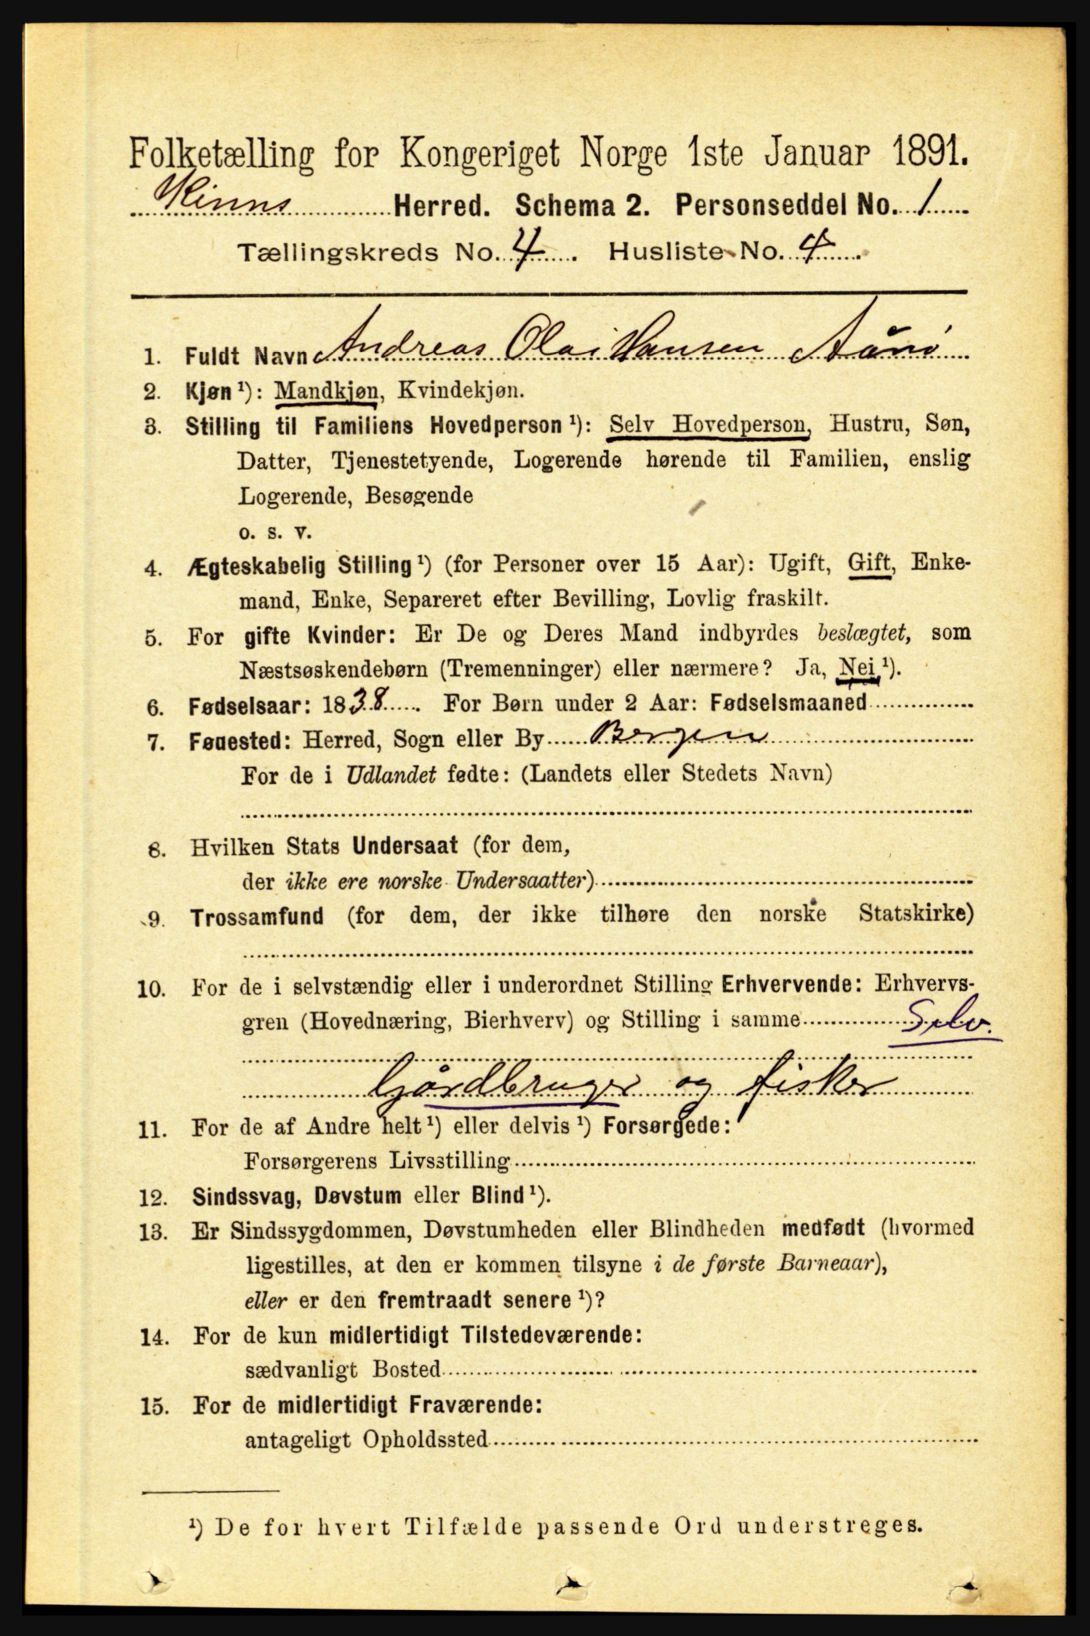 Folketælling for Kongeriget Norge 1ste Januar 1891.
Kinns Herred. Schema 2. Personseddel No. 1
Tællingskreds No. 4. Husliste No. 4.
1. Fuldt Navn Andreas Olai Hansen
2. Kjøn ¹): Mandkjøn, Kvindekjøn.
3. Stilling til Familiens Hovedperson ¹): Selv Hovedperson, Hustru, Søn,
Datter, Tjenestetyende, Logerende hørende til Familien, enslig
Logerende, Besøgende
o. s. v.
4. Ægteskabelig Stilling ¹) (for Personer over 15 Aar): Ugift, Gift, Enke-
mand, Enke, Separeret efter Bevilling, Lovlig fraskilt.
5. For gifte Kvinder: Er De og Deres Mand indbyrdes beslægtet, som
Næstsøskendebørn (Tremenninger) eller nærmere? Ja, Nei ¹).
6. Fødselsaar: 1838. For Børn under 2 Aar: Fødselsmaaned
7. Fødested: Herred, Sogn eller By Bergen
For de i Udlandet fødte: (Landets eller Stedets Navn)
8. Hvilken Stats Undersaat (for dem,
der ikke ere norske Undersaatter)
9. Trossamfund (for dem, der ikke tilhøre den norske Statskirke)
10. For de i selvstændig eller i underordnet Stilling Erhvervende: Erhvervs-
gren (Hovednæring, Bierhverv) og Stilling i samme Selv.
Gårdbruger og fisker
11. For de af Andre helt ¹) eller delvis ¹) Forsørgede:
Forsørgerens Livsstilling
12. Sindssvag, Døvstum eller Blind ¹).
13. Er Sindssygdommen, Døvstumheden eller Blindheden medfødt (hvormed
ligestilles, at den er kommen tilsyne i de første Barneaar),
eller er den fremtraadt senere ¹)?
14. For de kun midlertidigt Tilstedeværende:
sædvanligt Bosted
15. For de midlertidigt Fraværende:
antageligt Opholdssted
¹) De for hvert Tilfælde passende Ord understreges.